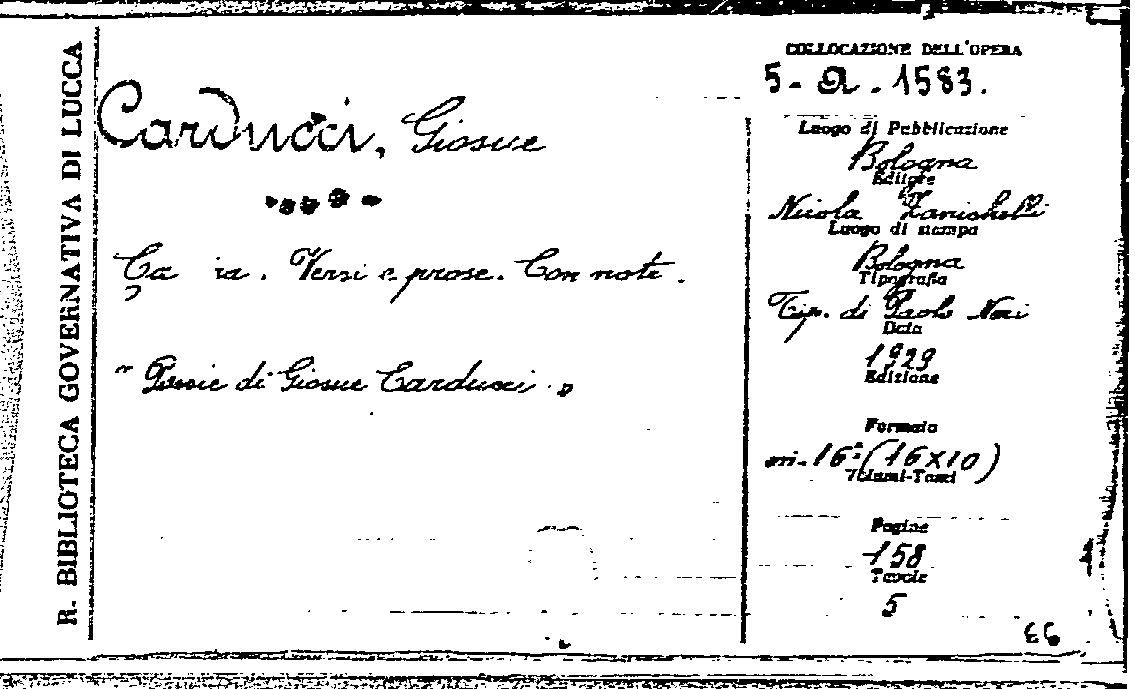 R. BIBLIOTECA GOVERNATIVA DI LUCCA
Carducci, Giosue
Ça ira. Versi e prose. Con note.
" Poesie di Giosue Carducci. "
COLLOCAZIONE DELL'OPERA
5-a-1583.
Luogo di Pubblicazione
Bologna
Editore
Nicola Zanichelli
Luogo di stampa
Bologna
Tipografia
Tip. di Paolo Neri
Data
1929
Edizione
Formato
in-16º (16x10)
Volumi-Tomi
Pagine
158
Tavole
5
66